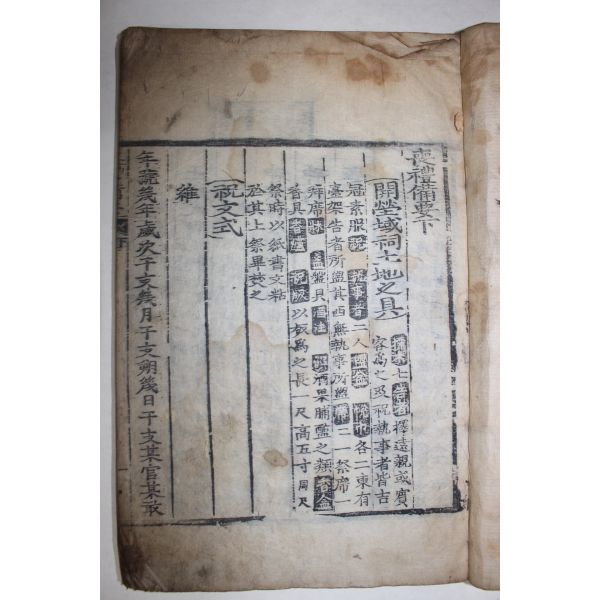 喪禮備要下
開塋域祠土地之具
告者擇遠親或賓
客爲之及祝執事者皆吉
冠素服祝執事者二人盥盆帨巾各二東有
臺架告者所盥其西無執事所盥 二一祭席一
拜席 盞盤具 酒果脯醢之類
香具 祝版以板爲之長一尺高五寸周尺
祭時以紙書文粘
於其上祭畢焚之
祝文式
維
年號幾年歲次干支幾月干支朔幾日干支某官某敢